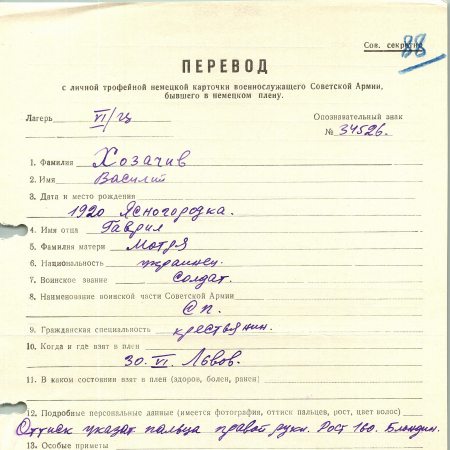 Сов. секретно
88
ПЕРЕВОД
с личной трофейной немецкой карточки военнослужащего Советской Армии,
бывшего в немецком плену.
Лагерь VI/
Опознавательный знак
№ 34526.
1. Фамилия Хозачив
2. Имя Василий
3. Дата и место рождения
1920 Ясногородка.
4. Имя отца Гаврил
5. Фамилия матери Мотря
6. Национальность украинец.
7. Воинское звание солдат.
8. Наименование воинской части Советской Армии
СП.
9. Гражданская специальность крестьянин.
10. Когда и где взят в плен
30. VI. Львов.
11. В каком состоянии взят в плен (здоров, болен, ранен)
12. Подробные персональные данные (имеется фотография, оттиск пальцев, рост, цвет волос)
Оттиск указат пальца правой руки. Рост 160. Блондин.
13. Особые приметы